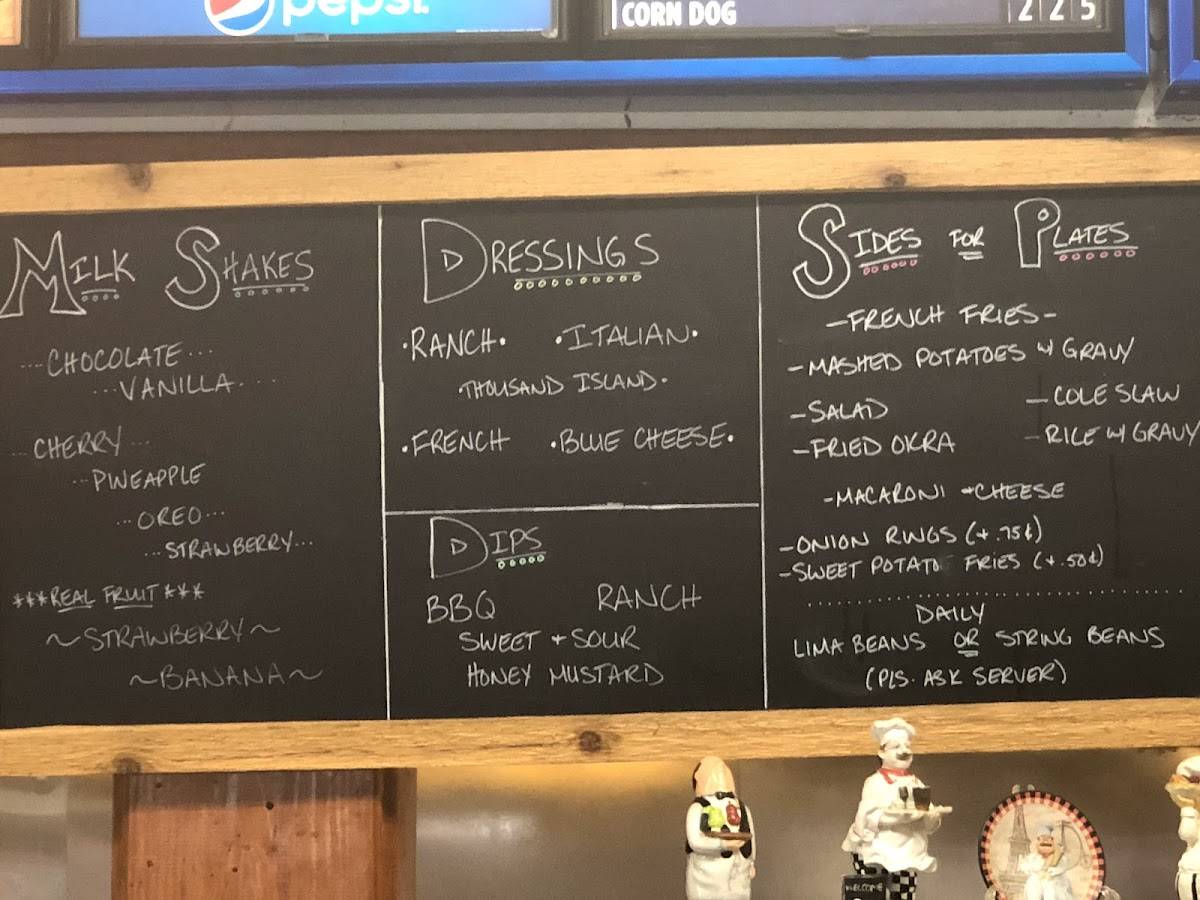 pepsi.
CORN DOG 2 2 5
MILK SHAKES
...CHOCOLATE...
...VANILLA....
CHERRY...
...PINEAPPLE
...OREO...
...STRAWBERRY...
***REAL FRUIT***
~STRAWBERRY~
~BANANA~
DRESSINGS
•RANCH• •ITALIAN•
•THOUSAND ISLAND•
•FRENCH •BLUE CHEESE•
DIPS
BBQ RANCH
SWEET + SOUR
HONEY MUSTARD
SIDES FOR PLATES
-FRENCH FRIES-
-MASHED POTATOES W/ GRAVY
-SALAD -COLE SLAW
-FRIED OKRA -RICE W/ GRAVY
-MACARONI +CHEESE
-ONION RINGS (+.75¢)
-SWEET POTATO FRIES (+.50¢)
DAILY
LIMA BEANS OR STRING BEANS
(PLS. ASK SERVER)
WELCOME